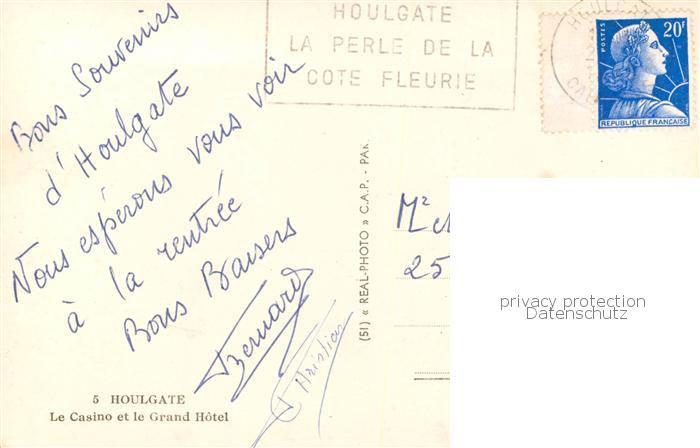 HOULGATE
LA PERLE DE LA
COTE FLEURIE
HOULG
CAL
20F
POSTES
REPUBLIQUE FRANÇAISE
Bons Souvenirs
d'Houlgate
Nous espérons vous voir
à la rentrée
Bons Baisers
Bernard
Christian
5 HOULGATE
Le Casino et le Grand Hôtel
(51) « REAL-PHOTO » C.A.P. - PAR
Mr
25
privacy protection
Datenschutz